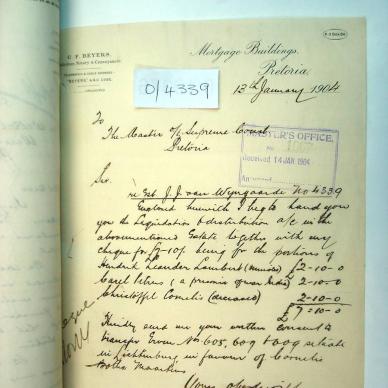 C. F. BEYERS.
Mortgage Buildings,
Pretoria,
0/4339
13th January 1904
To
The Master o/t Supreme Court
Pretoria
MASTER'S OFFICE.
Received 14 JAN 1904
Sir.
re Est. J. J. van Wyngaarde No 4339
Enclosed herewith I beg to hand you
you the Liquidation & distribution a/c in the
abovementioned Estate together with my
cheque for £7-10/- being for the portions of
Hendrik Leander Lambert (minor) £2-10-0
Carel Petrus (a prisoner of war India) 2-10-0
Christoffel Cornelis (deceased) 2-10-0
£7-10-0
Kindly send me your written consent to
transfer Erven No 605, 607 & 609 situate
in Lichtenburg in favour of Cornelis
Botha
Yours obediently